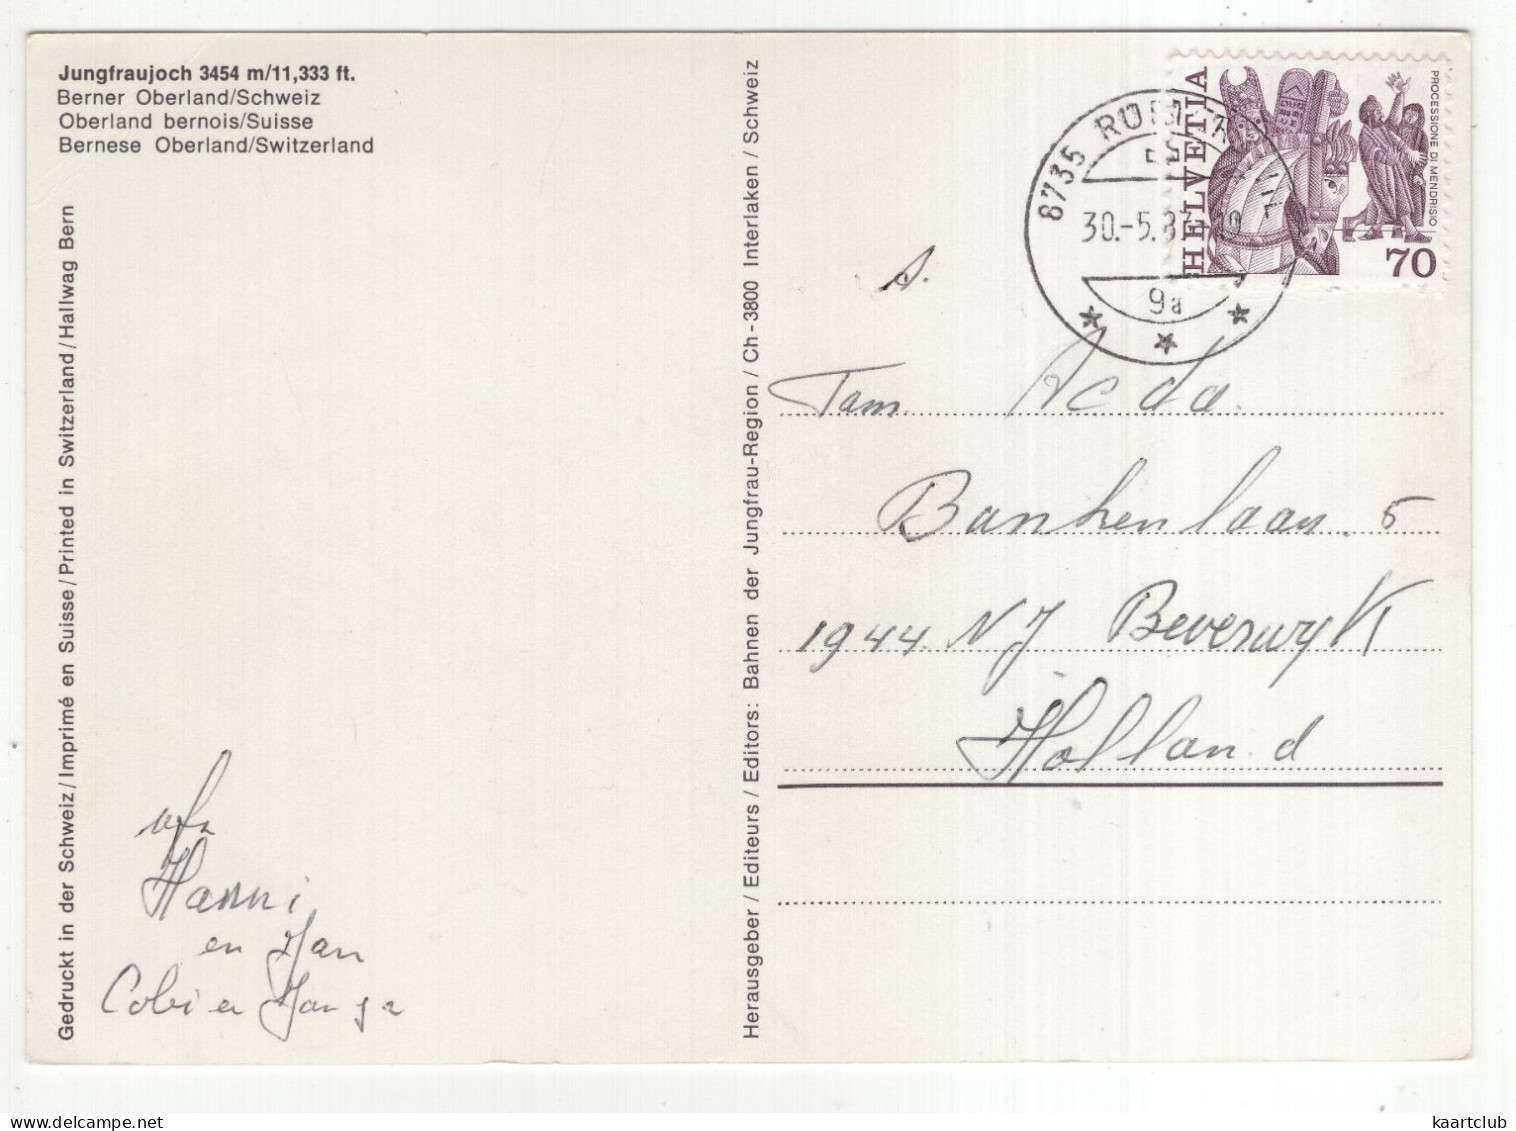 Jungfraujoch 3454 m/11,333 ft.
Berner Oberland/Schweiz
Oberland bernois/Suisse
Bernese Oberland/Switzerland
Gedruckt in der Schweiz/Imprimé en Suisse/Printed in Switzerland/Hallwag Bern
Hanni
en Jan
Cobi en
Herausgeber / Editeurs / Editors: Bahnen der Jungfrau-Region / Ch-3800 Interlaken / Schweiz
8735
30.-5.87-10
9a
HELVETIA
PROCESSIONE DI MENDRISIO
70
Fam.
Bankenlaan. 5
1944 NJ Beverwyk
Holland
kaartclub